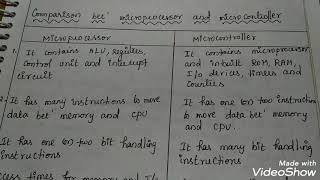 Comparison bet' microprocessor and microcontroller
Microprocessor
Microcontroller
1. It contains ALU, Registers,
control unit and interrupt
circuit
It contains microprocessor
and inbuilt ROM, RAM,
I/o devices, timers and
counters
2. It has many instructions to move
data bet' memory and CPU
It has one (or) two instruction
to move data bet' memory
and CPU.
It has one (or) two bit handling
instructions
It has many bit handling
instructions
access times for memory and I/o
Made with
VideoShow